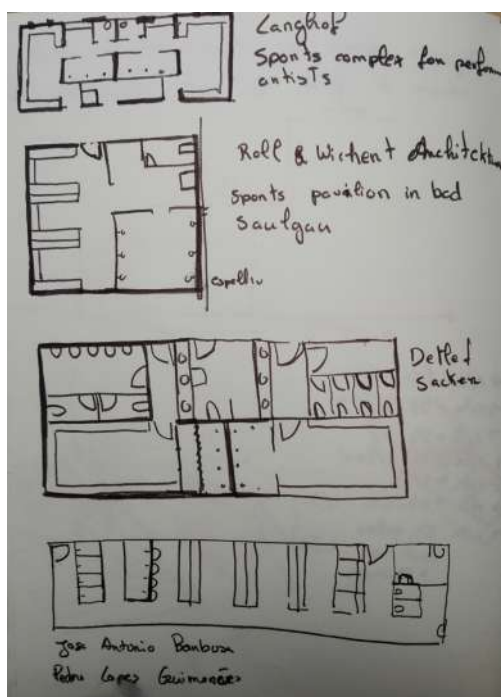 Langhof
Sports complex for perform
artists
Roll & Wichent Architektur
sports pavilion in bad
saulgau
espelliu
Detlef
sacker
Jose Antonio Barbosa
Pedro Lopes Guimarães